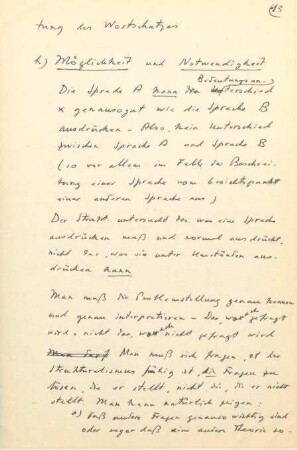 13
tung des Wortschatzes
h) Möglichkeit und Notwendigkeit
Bedeutungsun.)
Die Sprache A kann den Unterschied
x genausogut wie die Sprache B
ausdrücken – Also, kein Unterschied
zwischen Sprache A und Sprache B
(so vor allem im Falle der Beschrei-
bung einer Sprache vom Gesichtspunkt
einer anderen Sprache aus)
Der Strukt. untersucht das, was eine Sprache
ausdrücken muß und normal ausdrückt,
nicht das, was sie unter Umständen aus-
drücken kann
Man muß die Problemstellung genau kennen
und genau interpretieren – Das, wonach gefragt
wird, nicht das, wonach nicht gefragt wird
Man darf Man muß sich fragen, ob der
Strukturalismus fähig ist, die Fragen zu
lösen, die er stellt, nicht die, die er nicht
stellt. Man kann natürlich zeigen:
a) daß andere Fragen genauso wichtig sind
oder sogar daß eine andere Theorie so-